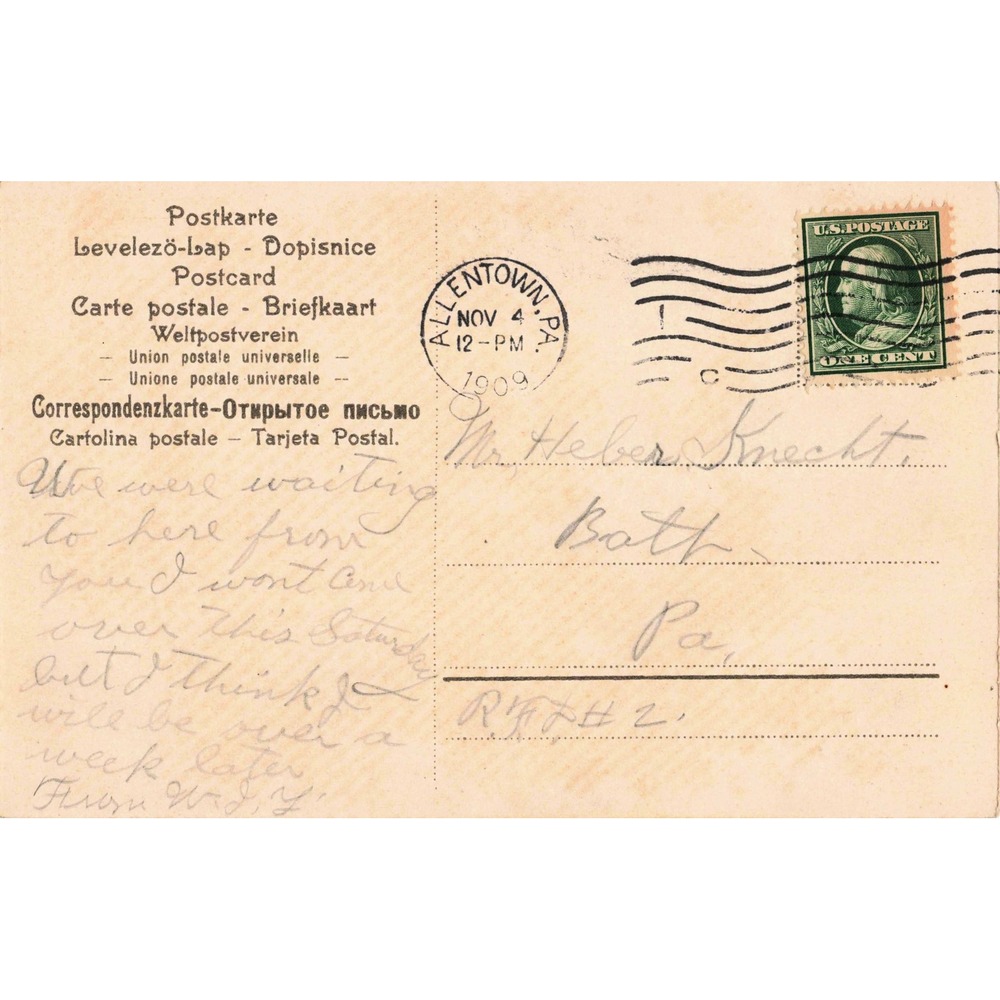 Postkarte
Levelező-Lap - Dopisnice
Postcard
Carte postale - Briefkaart
Weltpostverein
— Union postale universelle —
— Unione postale universale —
Correspondenzkarte-Открытое письмо
Cartolina postale — Tarjeta Postal.
U.S. POSTAGE
ONE CENT
ALLENTOWN, PA.
NOV 4
12-PM
1909
1
C
We were waiting
to here from
you I wont come
over this Saturday
but I think I
will be over a
week later
From W. I. Y.
Mr, Heber Knecht.
Bath
Pa,
R.F.D # 2.